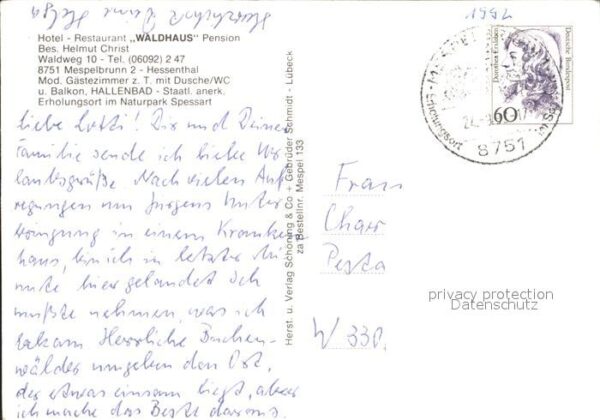 Herzlichst Deine Helga
1992
Hotel - Restaurant „WALDHAUS" Pension
Bes. Helmut Christ
Waldweg 10 - Tel. (06092) 2 47
8751 Mespelbrunn 2 - Hessenthal
Mod. Gästezimmer z. T. mit Dusche/WC
u. Balkon, HALLENBAD - Staatl. anerk.
Erholungsort im Naturpark Spessart
liebe Lotti! Dir und Deiner
Familie sende ich liebe Ur
laubsgrüße. Nach vielen Auf
regungen um Jürgens Unter
bringung in einem Kranken
haus, bin ich in letzter Mi
nute hier gelandet. Ich
mußte nehmen, was ich
bekam. Herrliche Buchen-
wälder umgeben den Ort,
der etwas einsam liegt, aber
ich mache das Beste daraus.
Herst. u. Verlag Schöning & Co + Gebrüder Schmidt - Lübeck
zu Bestellnr. Mespel 133
Deutsche Bundespost
Dorothea Erxleben
60
MESPEL
Erholungsort
8751
Frau
Pesta
W 330.
privacy protection
Datenschutz